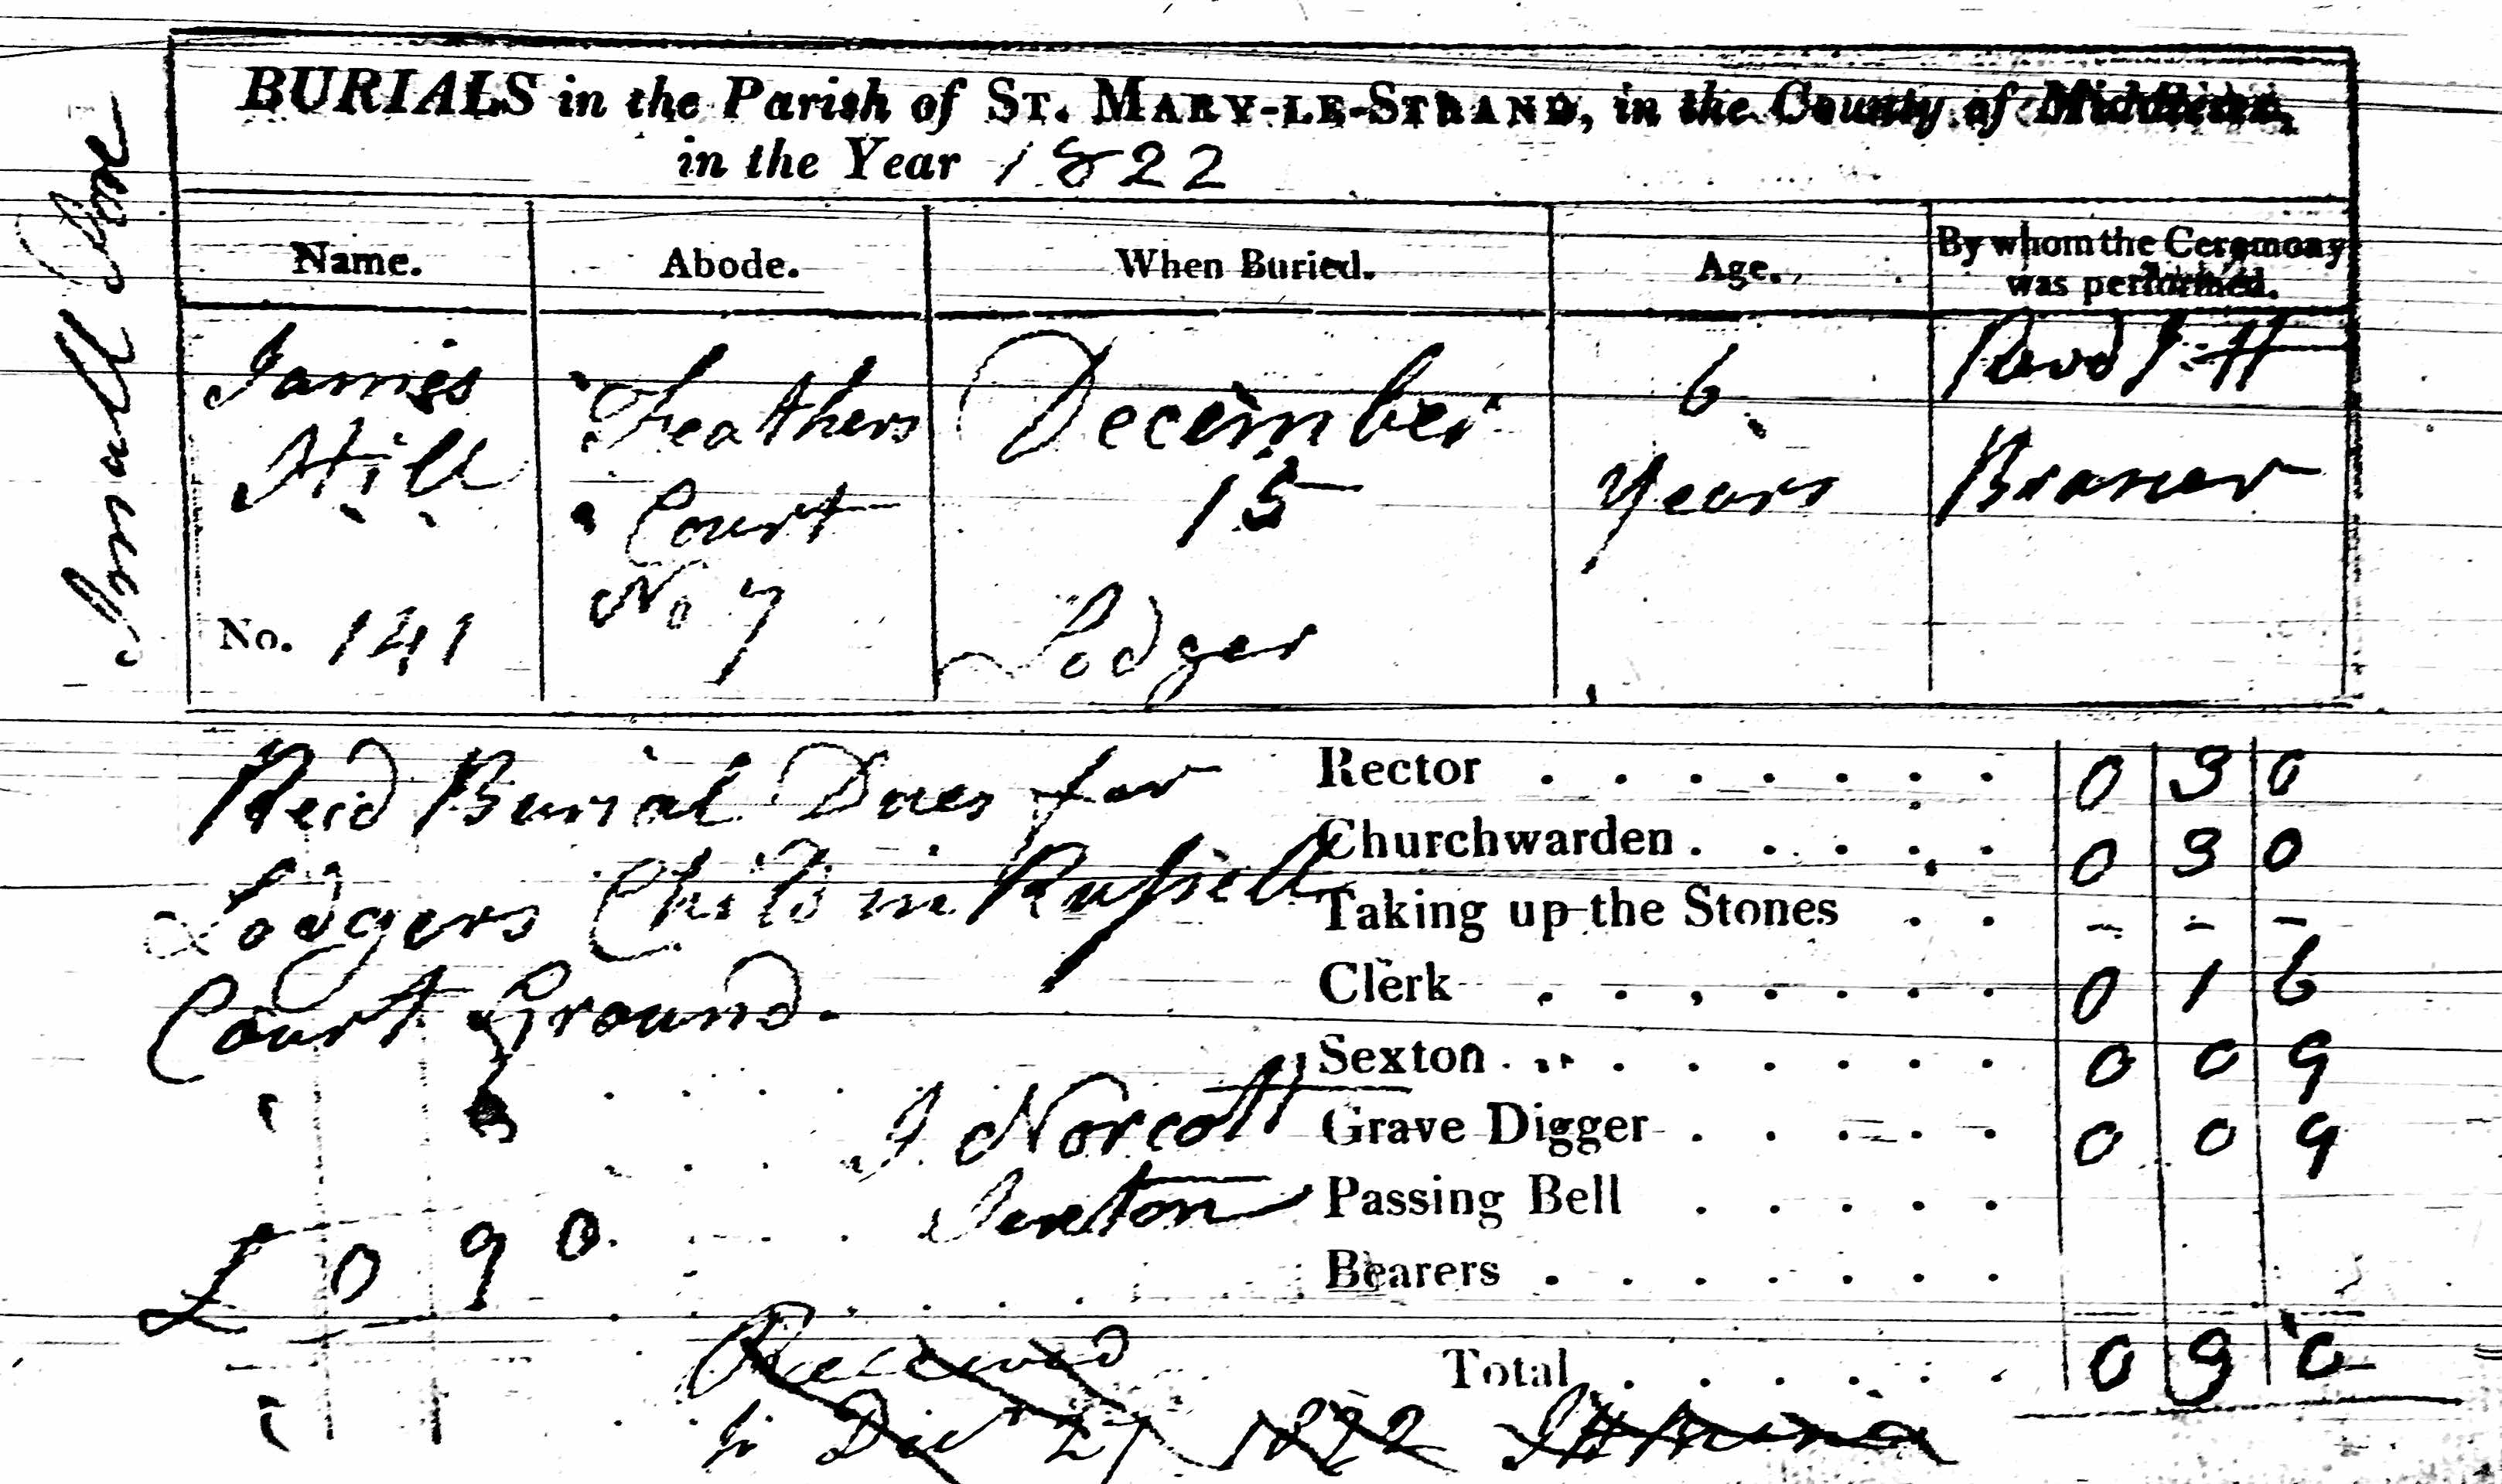 BURIALS in the Parish of ST. MARY-LE-STRAND, in the County of Middlesex,
in the Year 1822
Small Pox
Name. Abode. When Buried. Age. By whom the Ceremony was performed.
James Feathers December 6 Davd Pitt
Hill Court 15 Years
No. 141 No 7 Lodger
Reid Burial Dues for
Lodgers Child in Russell
Court Ground.
J. Norcott
Sexton
£ 0 9 0.
Rector 0 3 0
Churchwarden 0 3 0
Taking up the Stones - - -
Clerk 0 1 6
Sexton 0 0 9
Grave Digger 0 0 9
Passing Bell
Bearers
Total 0 9 0
Received
1822